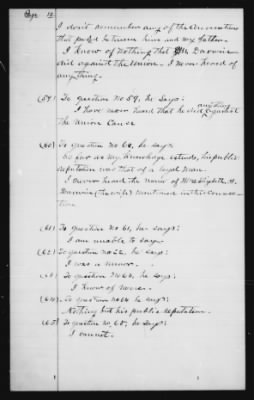 I don't remember any of the conversations
that passed between him and my father.
I know of nothing that Mr. Brawner
did against the Union. I never heard of
anything.
(59) To question No 59, he says:
I have never heard that he did anything against
the Union Cause
(60) To question no 60, he says:
So far as my knowledge extends, his public
reputation was that of a loyal man.
I never heard the name of Mrs Elizabeth
(the wife) mentioned in this connec-
tion.
(61) To question no 61, he says:
I am unable to say.
(62) To question no 62, he says:
I was a minor.
To question no 63, he says:
I know of none.
(64) To question no 64 he says:
Nothing but his public reputation.
(65) To question no, 65, he says:
I cannot.